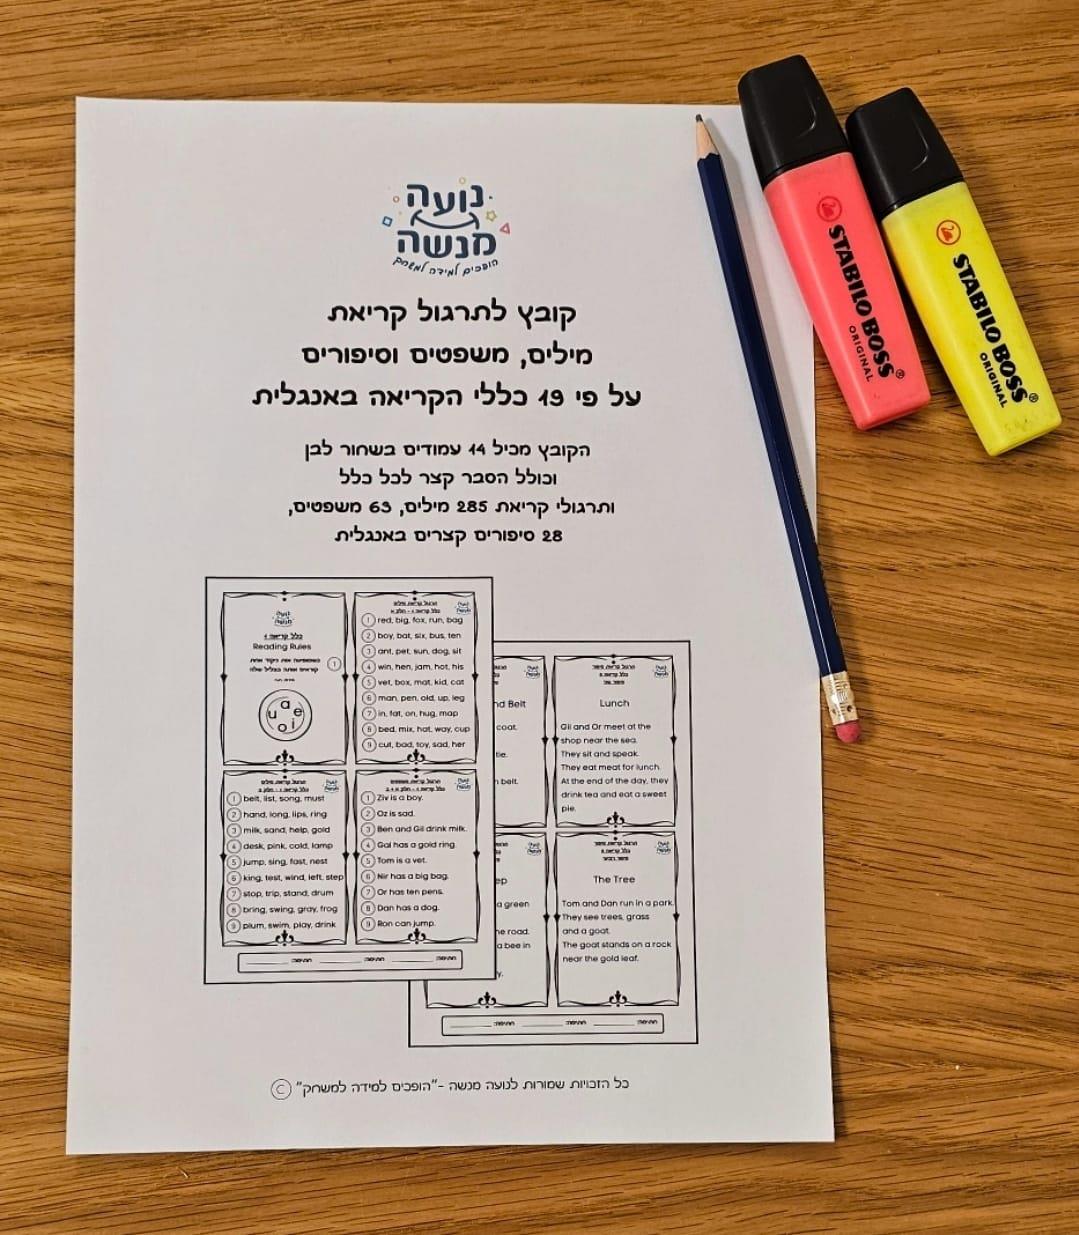 נועה
מנשה
הופכים למידה למשחק
קובץ לתרגול קריאת
מילים, משפטים וסיפורים
על פי 19 כללי הקריאה באנגלית
הקובץ מכיל 14 עמודים בשחור לבן
וכולל הסבר קצר לכל כלל
ותרגולי קריאת 285 מילים, 63 משפטים,
28 סיפורים קצרים באנגלית
כלל קריאה 1
Reading Rules
1
כשמופיעה אות ניקוד אחת
קוראים אותה בצליל שלה
a
u e
o i
תרגול קריאת מילים
כלל קריאה 1 - חלק א
1 red, big, fox, run, bag
2 boy, bat, six, bus, ten
3 ant, pet, sun, dog, sit
4 win, hen, jam, hot, his
5 vet, box, mat, kid, cat
6 man, pen, old, up, leg
7 in, fat, on, hug, map
8 bed, mix, hat, way, cup
9 cut, bad, toy, sad, her
תרגול קריאת מילים
כלל קריאה 1 - חלק ב
1 belt, list, song, must
2 hand, long, lips, ring
3 milk, sand, help, gold
4 desk, pink, cold, lamp
5 jump, sing, fast, nest
6 king, test, wind, left, step
7 stop, trip, stand, drum
8 bring, swing, gray, frog
9 plum, swim, play, drink
תרגול קריאת משפטים
כלל קריאה 1 - חלק א + ב
1 Ziv is a boy.
2 Oz is sad.
3 Ben and Gil drink milk.
4 Gal has a gold ring.
5 Tom is a vet.
6 Nir has a big bag.
7 Or has ten pens.
8 Dan has a dog.
9 Ron can jump.
חתימה: חתימה: חתימה:
nd Belt
coat.
tie.
n belt.
תרגול קריאת סיפור
Lunch
Gil and Or meet at the
shop near the sea.
They sit and speak.
They eat meat for lunch.
At the end of the day, they
drink tea and eat a sweet
pie.
ep
a green
he road.
a bee in
y.
תרגול קריאת סיפור
The Tree
Tom and Dan run in a park.
They see trees, grass
and a goat.
The goat stands on a rock
near the gold leaf.
חתימה: חתימה: חתימה:
כל הזכויות שמורות לנועה מנשה -"הופכים למידה למשחק" ©
STABILO BOSS®
ORIGINAL
STABILO BOSS®
ORIGINAL